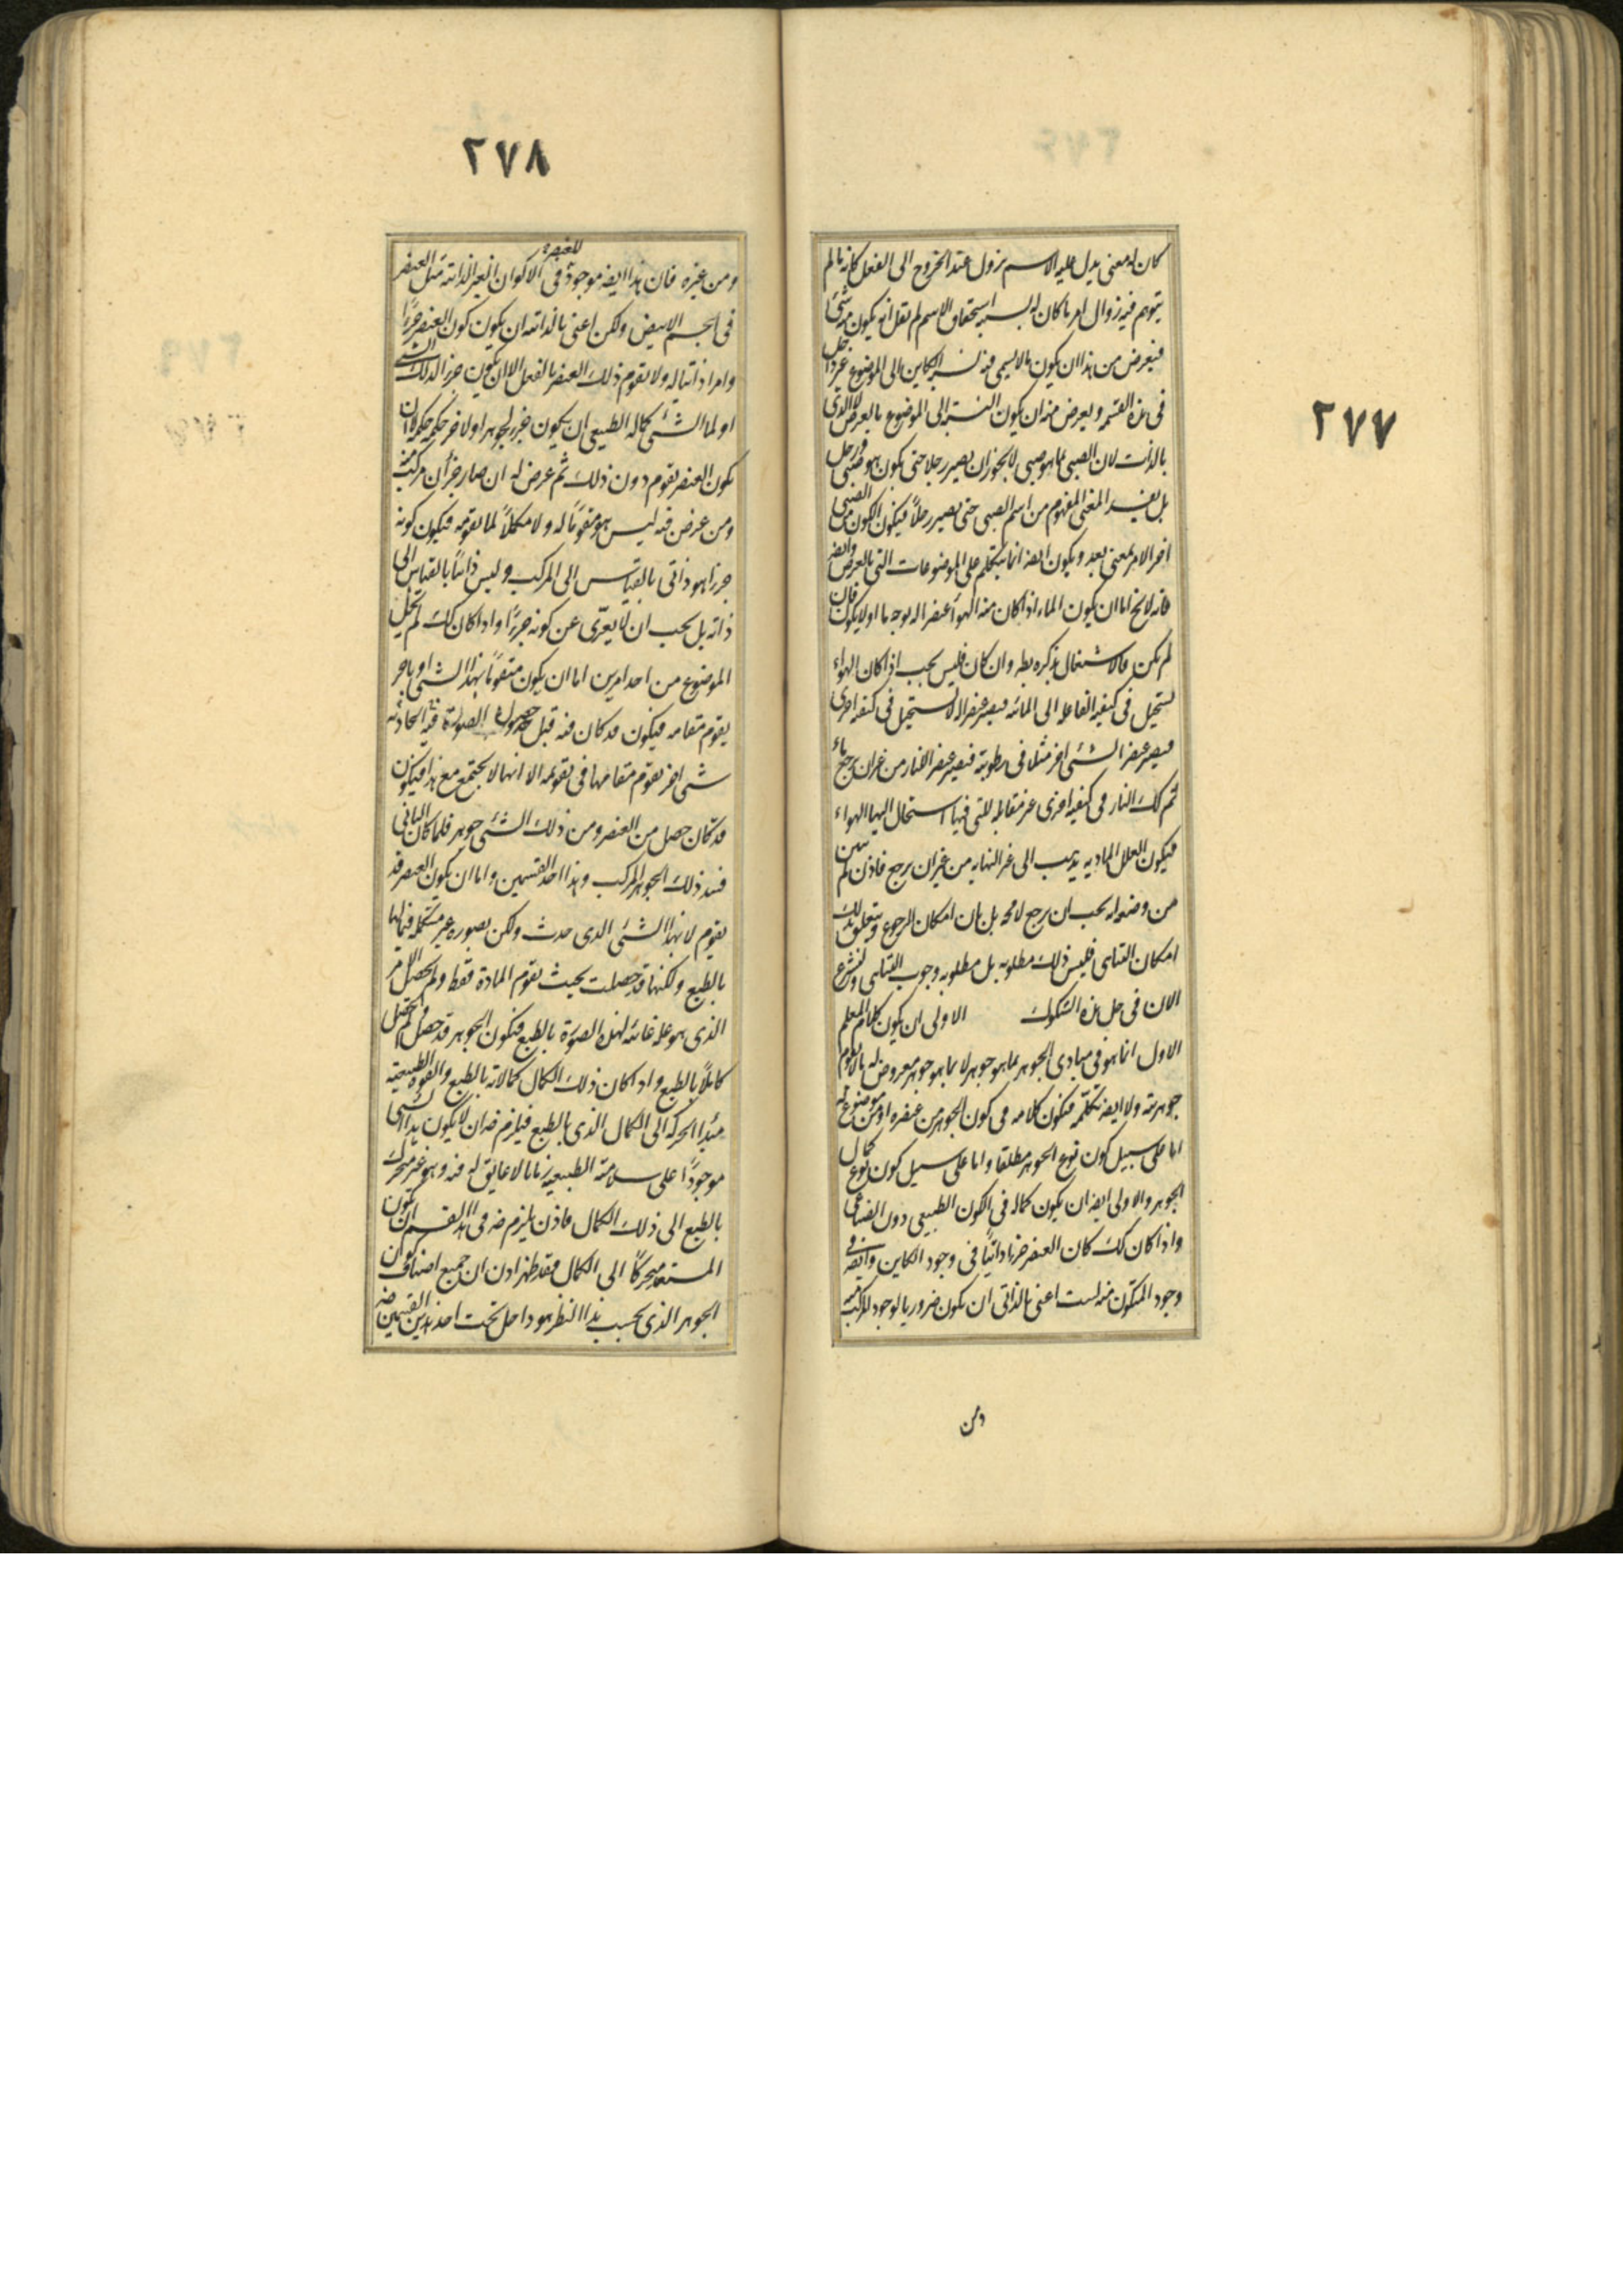 ٢٧٧
كان له معنى يدل عليه الاسم يزول عند الخروج الى الفعل كانا لم
يتوهم فيه زوال امر ما كان له بسببه استحقاق الاسم لم نقل انه يكون من شئ
فيعرض من هذا ان يكون ما لا يسمى فيه نسبة الكاين الى الموضوع غير داخل
فى هذه القسمة ويعرض منه ان يكون النسبة الى الموضوع بالعرض لا الذى
بالذات لان الصبى بما هو صبى لا يجوز ان يصير رجلا حتى يكون هو صبى ورجل
بل يفسد المعنى المفهوم من اسم الصبى حتى يصير رجلاً فيكون الكون من الصبى
اخر الامر بمعنى بعد ويكون ايضه انما يتكلم على الموضوعات التى بالعرض وايضه
فانه لا يخ اما ان يكون الماء اذا كان منه الهواء عنصرا له بوجه ما او لا يكون فان
لم يكن فالاشتغال بذكره بط وان كان فليس يجب اذا كان الهواء
يستحيل فى كيفيته الفاعلة الى المائيه فيصير عنصرا له لا يستحيل فى كيفيه اخرى
فيصير عنصرا لشئ اخر مثلا فى رطوبته فيصير عنصرا للنار من غير ان يرجع ماء
ثم كك النار فى كيفيه اخرى غير مقابلة للتى فيها استحال اليها الهواء
فيكون العلل الماديه يذهب الى غير النهايه من غير ان يرجع فاذن لم يتبين
من وضعه انه يجب ان يرجع لا محه بل بان امكان الرجوع ويتعلق بذلك
امكان التناهى فليس ذلك مطلوبه بل مطلوبه وجوب التناهى ولنشرع
الان فى حل هذه الشكوك الاولى ان يكون كلام المعلم
الاول انما هو فى مبادى الجوهر بما هو جوهر لا بما هو جوهر معروض له ما لا يقوم
جوهريته ولا ايضه يكلمه فيكون كلامه فى كون الجوهر من عنصره او من موضوع له
اما على سبيل كون نوع الجوهر مطلقا واما على سبيل كون كمال نوع
الجوهر والاولى ايضه ان يكون كماله فى الكون الطبيعى دون الصناعى
واذا كان كك كان العنصر جزءا ذاتيا فى وجود الكاين وايضه فى
وجود المتكون منه لست اعنى بالذاتى ان يكون ضروريا لوجود المركب منه
ومن
٢٧٨
ومن غيره فان هذا ايضه موجود للعنصر فى الاكوان الغير الذاتيه مثل العنصر
فى الجسم الابيض ولكن اعنى بالذاتيه ان يكون كون العنصر جزءا
وامرا ذاتيا له ولا يقوم ذلك العنصر بالفعل الا ان يكون جزءا لذلك الشئ
او لما الشئ كماله الطبيعى ان يكون جزء لجوهر او لا خر حكمه حكمه لا ان
يكون العنصر يقوم دون ذلك ثم عرض له ان صار جزأ من مركب منه
ومن عرض فيه ليس هو مقوماً له ولا مكملاً لما يقومه فيكون كونه
جزءا هو ذاتى بالقياس الى المركب وليس ذاتياً بالقياس الى
ذاته بل يجب ان لا يعرّى عن كونه جزءاً واذا كان كك لم يخل
الموضوع من احد امرين اما ان يكون متقوماً بهذا الشئ او باخر
يقوم مقامه فيكون قد كان فيه قبل حصول الصورة فيه الحادثه
شئ اخر يقوم مقامها فى تقويمه الا انها لا يجتمع مع هذا فيكون
قد كان حصل من العنصر ومن ذلك الشئ جوهر فلما كان الثانى
فسد ذلك الجوهر المركب وهذا احد القسمين واما ان يكون العنصر قد
يقوم لا بهذا الشئ الذى حدث ولكن بصوره غير مستكملة فيما لها
بالطبع ولكنها قد حصلت بحيث تقوم المادة فقط ولم يحصل الامر
الذى هو علة غائيه لهذه الصورة بالطبع فيكون الجوهر قد حصل لم يحصل
كاملاً بالطبع واذ كان ذلك الكمال كمالا له بالطبع والقوة الطبيعية
مبدأ الحركة الى الكمال الذى بالطبع فيلزم ضه ان لا يكون هذا الشئ
موجوداً على سلامة الطبيعيه زمانا لا عايق له فيه وهو غير متحرك
بالطبع الى ذلك الكمال فاذن يلزم ضه فى هذا القسم ان يكون
المستعد متحركاً الى الكمال فقد ظهر اذن ان جميع اصناف كون
الجوهر الذى بحسب هذا النظر هو داخل تحت احد هذين القسمين ضه